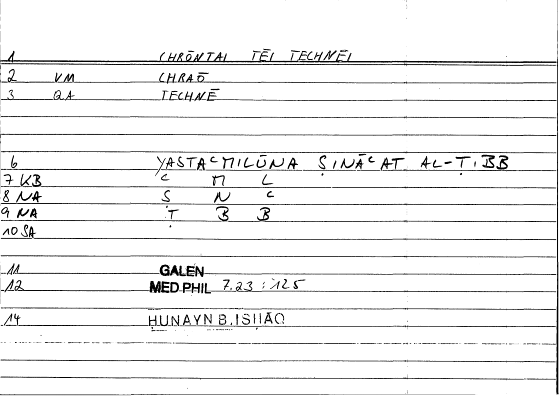 1 CHRŌNTAI TĒI TECHNĒI
2 VM CHRAŌ
3 QA TECHNĒ
6 YASTAᶜMILŪNA ṢINĀᶜAT AL-ṬIBB
7 KB ᶜ M L
8 NA Ṣ N ᶜ
9 NA Ṭ B B
10 SA
11 GALEN
12 MED.PHIL 7.23 : 125
14 ḤUNAYN B.ISḤĀQ